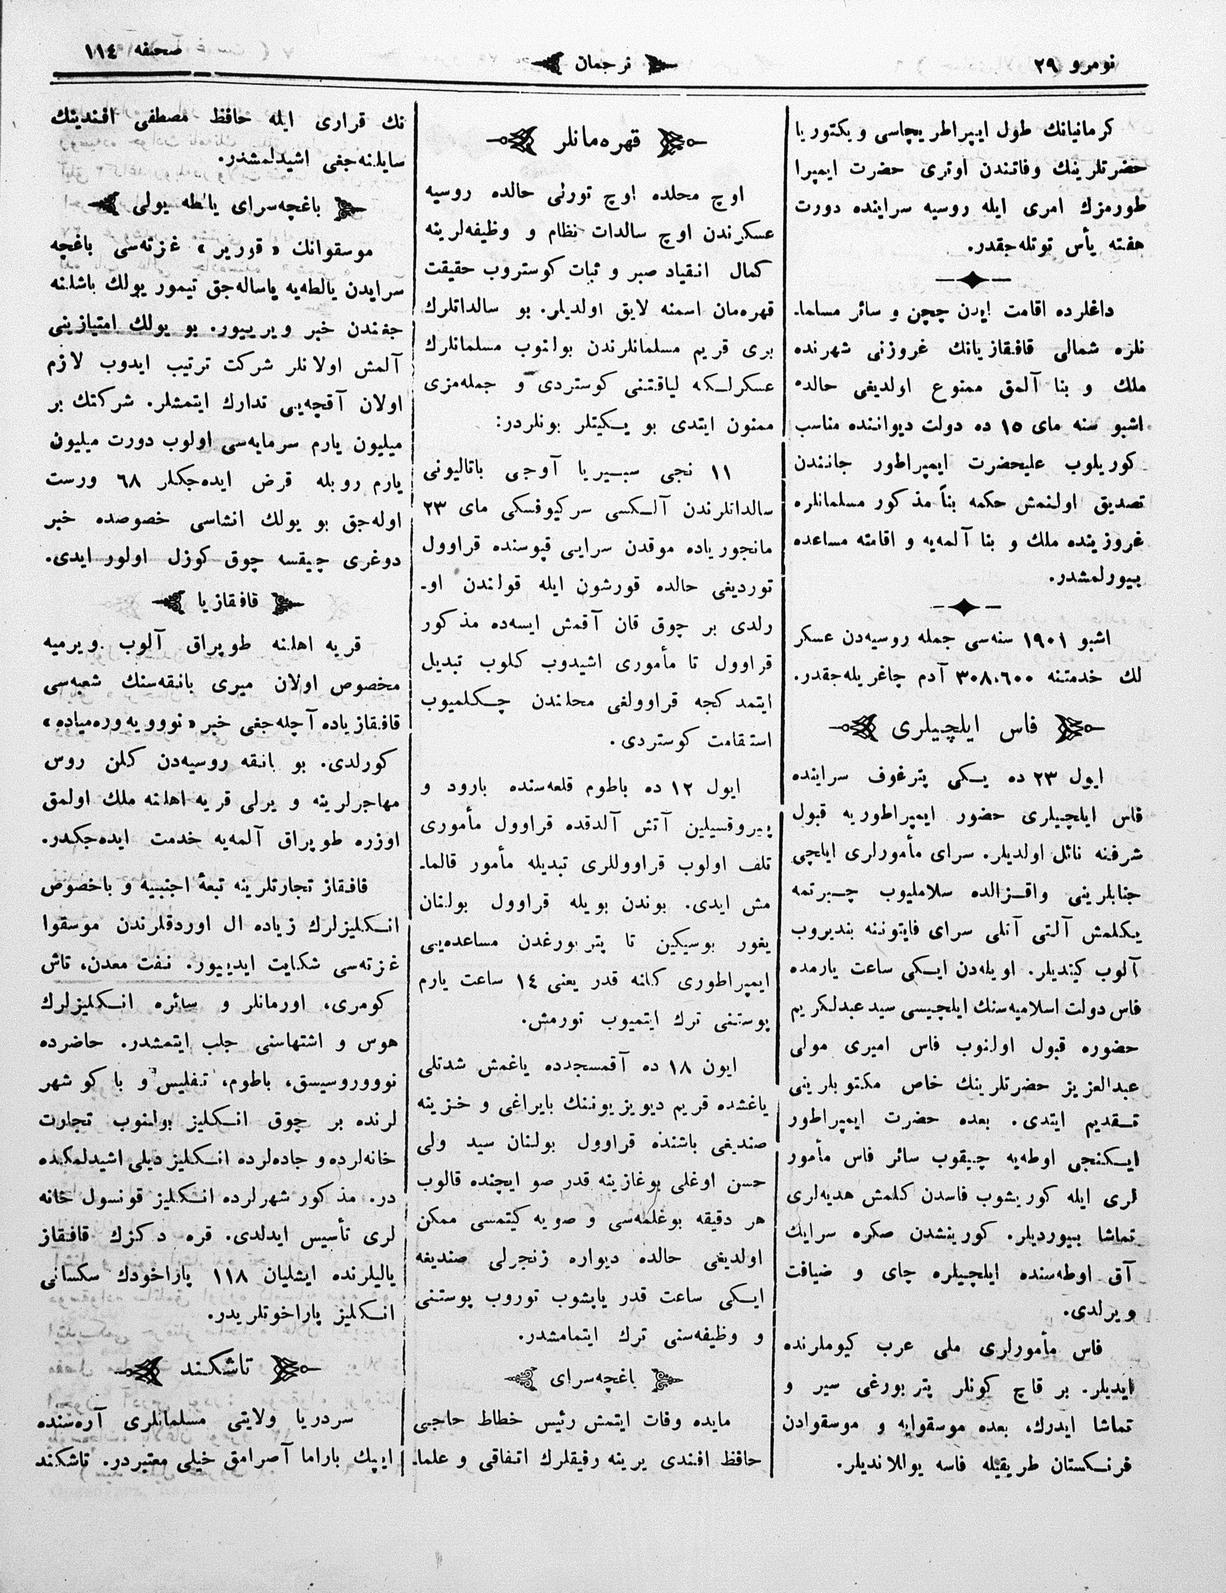 نومرو ٢٩
ترجمان
صحیفه ١١٤
كرمانیانك طول ایپراطریچاسی ویكتوریا
حضرتلرینك وفاتندن اوتری حضرت ایمپرا
طورمزك امری ایله روسیه سراینده دورت
هفته یأس توتله‌جقدر.
داغلرده اقامت ایدن چچن و سائر مسلما-
نلره شمالی قافقازیانك غروزنی شهرنده
ملك و بنا آلمق ممنوع اولدیغی حالده
اشبو سنه مای ١٥ ده دولت دیواننده مناسب
كوریلوب علیحضرت ایمپراطور جانندن
تصدیق اولنمش حكمه بناً مذكور مسلمانلره
غروزینده ملك و بنا آلمه‌یه و اقامته مساعده
بیورلمشدر.
اشبو ١٩٠١ سنه‌سی جمله روسیه‌دن عسكر
لك خدمتنه ٣٠٨،٦٠٠ آدم چاغریله‌جقدر.
فاس ایلچیلری
ایول ٢٣ ده یكی پترغوف سراینده
فاس ایلچیلری حضور ایمپراطوریه قبول
شرفنه نائل اولدیلر. سرای مأمورلری ایلچی
جنابلرینی واقزالده سلاملیوب چبرتمه
یكلمش آلتی آتلی سرای فایتوننه بندیروب
آلوب كیتدیلر. اویله‌دن ایكی ساعت یارمده
فاس دولت اسلامیه‌سنك ایلچیسی سید عبدلكریم
حضوره قبول اولنوب فاس امیری مولی
عبدالعزیز حضرتلرینك خاص مكتوبلرینی
تقدیم ایتدی. بعده حضرت ایمپراطور
ایكنجی اوطه‌یه چیقوب سائر فاس مأمور
لری ایله كوریشوب فاسدن كلمش هدیه‌لری
تماشا بیوردیلر. كورینشدن صكره سرایك
آق اوطه‌سنده ایلچیلره چای و ضیافت
ویرلدی.
فاس مأمورلری ملی عرب كیوملرنده
ایدیلر. بر قاچ كونلر پتربورغی سیر و
تماشا ایدرك، بعده موسقوایه و موسقوادن
فرنكستان طریقیله فاسه یوللاندیلر.
قهره‌مانلر
اوچ محلده اوچ تورلی حالده روسیه
عسكرندن اوچ سالدات نظام و وظیفه‌لرینه
كمال انقیاد صبر و ثبات كوستروب حقیقت
قهره‌مان اسمنه لایق اولدیلر. بو سالداتلرك
بری قریم مسلمانلرندن بولنوب مسلمانلرك
عسكرلكه لیاقتنی كوستردی و جمله‌مزی
ممنون ایتدی بو یكیتلر بونلردر:
١١ نجی سبیریا آوجی باتالیونی
سالداتلرندن آلكسی سركیوفسكی مای ٢٣
مانجوریاده موقدن سرایی قپوسنده قراوول
توردیغی حالده قورشون ایله قولندن او-
رلدی بر چوق قان آقمش ایسه‌ده مذكور
قراوول تا مأموری اشیدوب كلوب تبدیل
ایتمدكجه قراوولغی محلندن چكلمیوب
استقامت كوستردی.
ایول ١٢ ده باطوم قلعه‌سنده بارود و
پیروقسیلین آتش آلدقده قراوول مأموری
تلف اولوب قراووللری تبدیله مأمور قالما-
مش ایدی. بوندن بویله قراوول بولنان
یغور بوسیكین تا پتربورغدن مساعده‌یی
ایمپراطوری كلنه قدر یعنی ١٤ ساعت یارم
پوستنی ترك ایتمیوب تورمش.
ایون ١٨ ده آقمسجدده یاغمش شدتلی
یاغشده قریم دیویزیوننك بایراغی و خزینه
صندیغی باشنده قراوول بولنان سید ولی
حسن اوغلی بوغازینه قدر صو ایچنده قالوب
هر دقیقه بوغلمه‌سی و صویه كیتمسی ممكن
اولدیغی حالده دیواره زنجرلی صندیغه
ایكی ساعت قدر یاپشوب توروب پوستنی
و وظیفه‌سنی ترك ایتمامشدر.
باغچه‌سرای
مایده وفات ایتمش رئیس خطاط حاجی
حافظ افندی یرینه رفیقلرك اتفاقی و علما-
نك قراری ایله حافظ مصطفی افندینك
سایلنه‌جغی اشیدلمشدر.
باغچه‌سرای یالطه یولی
موسقوانك «قوریر» غزته‌سی باغچه
سرایدن یالطه‌یه یاساله‌جق تیمور یولك باشلنه
جغندن خبر ویرییور. بو یولك امتیازینی
آلمش اولانلر شركت ترتیب ایدوب لازم
اولان آقچه‌یی تدارك ایتمشلر. شركتك بر
میلیون یارم سرمایه‌سی اولوب دورت میلیون
یارم روبله قرض ایده‌جكلر ٦٨ ورست
اوله‌جق بو یولك انشاسی خصوصده خبر
دوغری چیقسه چوق كوزل اولور ایدی.
قافقازیا
قریه اهلنه طوپراق آلوب ویرمیه
مخصوص اولان میری بانقه‌سنك شعبه‌سی
قافقازیاده آچله‌جغی خبر «نوویه وره‌میاده»
كورلدی. بو بانقه روسیه‌دن كلن روس
مهاجرلرینه و یرلی قریه اهلنه ملك اولمق
اوزره طوپراق آلمه‌یه خدمت ایده‌جكدر.
قافقاز تجارتلرینه تبعۀ اجنبیه و باخصوص
انكلیزلرك زیاده ال اوردقلرندن موسقوا
غزته‌سی شكایت ایدییور. نفت معدن، تاش
كومری، اورمانلر و سائره انكلیزلرك
هوس و اشتهاسنی جلب ایتمشدر. حاضرده
نوووروسیسق، باطوم، تفلیس و باكو شهر
لرنده بر چوق انكلیز بولنوب تجارت
خانه‌لرده و جاده‌لرده انكلیز دیلی اشیدلمكده
در. مذكور شهرلرده انكلیز قونسول خانه
لری تأسیس ایدلدی. قره دكزك قافقاز
یالیلرنده ایشلیان ١١٨ پاراخودك سكسانی
انكلیز پاراخوتلریدر.
تاشكند
سردریا ولایتی مسلمانلری آره‌سنده
ایپك باراما آصرامق خیلی معتبردر. تاشكند